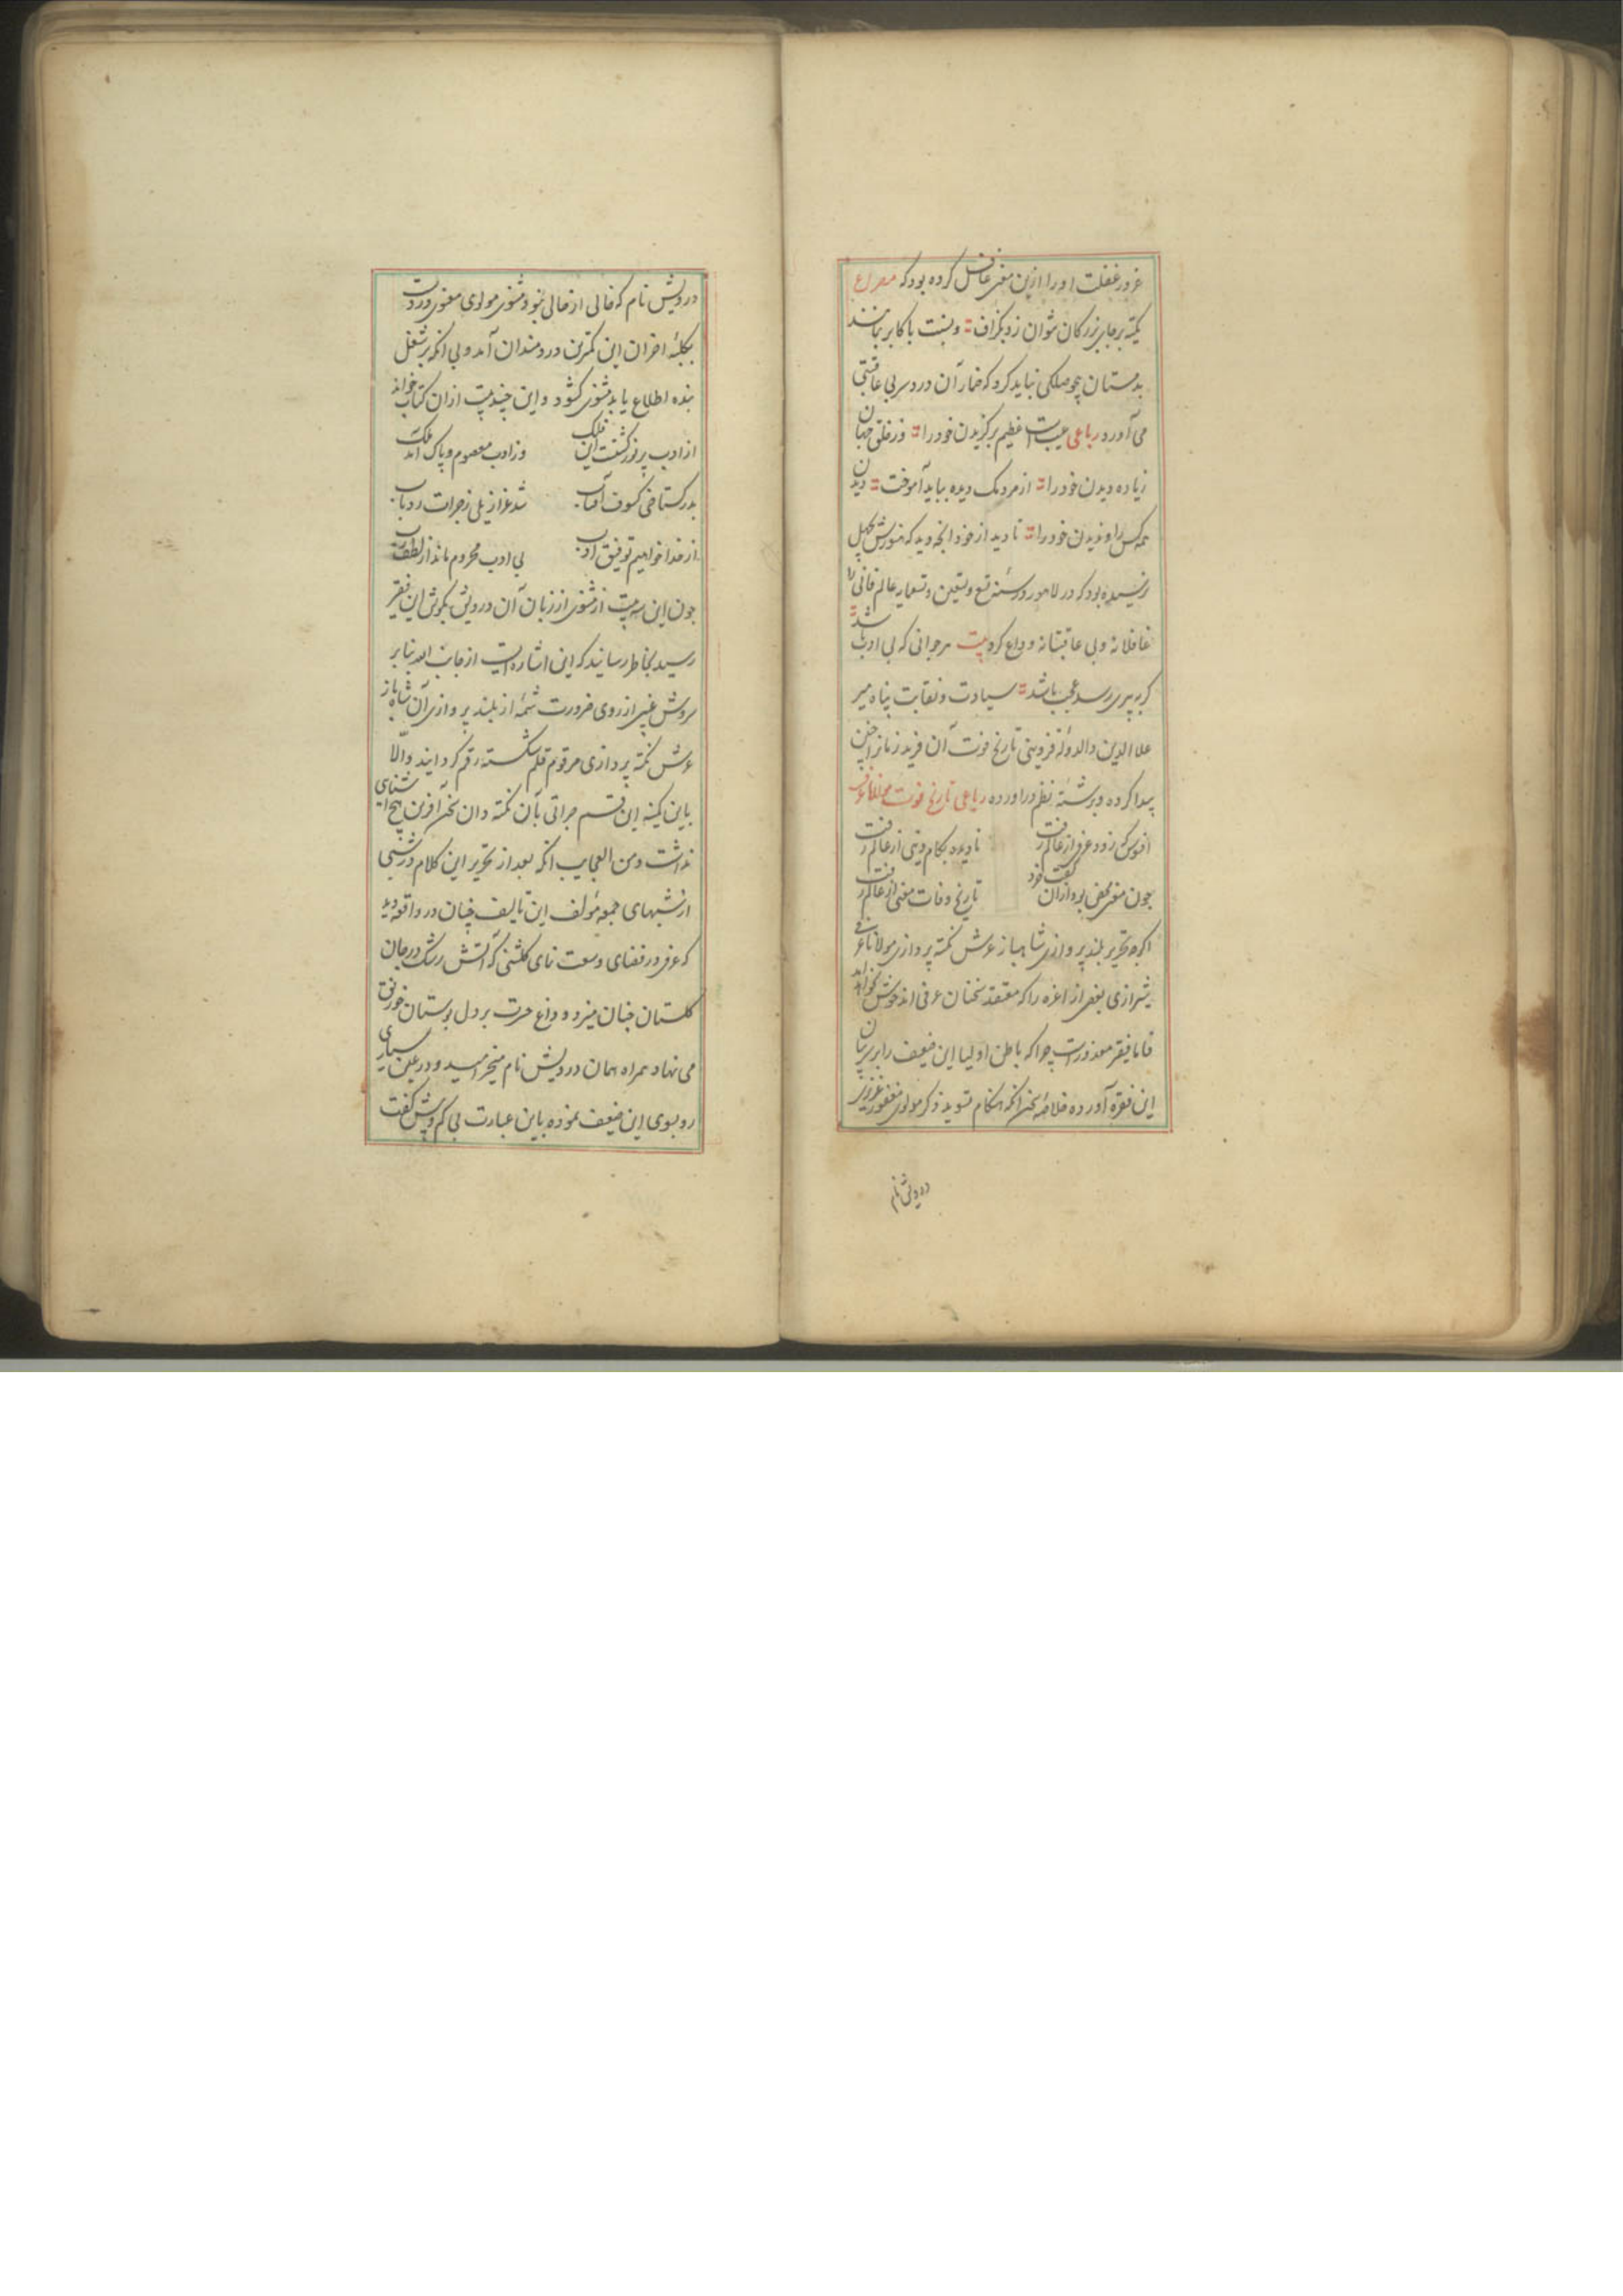 غرور غفلت او را ازین معنی غافل کرده بود که مصراع
تکیه بر جای بزرگان نتوان زد بگزاف و بنسبت با کابر مانند
بدمستان بی‌حوصلگی نباید کرد که خمار آن دردسر بی عاقبتی
می آورد رباعی عیبست عظیم برگزیدن خود را وز خلق جهان
زیاده دیدن خود را از مردمک دیده بباید آموخت دیدن
همه کس را و ندیدن خود را نا دید از خود انچه دید که هنوز سنش بچهل
نرسیده بود که در لاهور در سنه تسع و تسعین و تسعمایه عالم فانی را
غافلانه و بی عاقبتانه وداع کرد بیت هر جوانی که بی ادب باشد
گر به پیری رسد عجب باشد سیادت و نقابت پناه میر
علا الدین والدوله قزوینی تاریخ فوت آن فرید زمانرا چنین
پیدا کرده و برشته نظم در اورده رباعی تاریخ فوت مولانا عرفی
افسوس که زود عرفی از عالم رفت نادیده بکام دنیی از عالم رفت
چون معنی محض بود ازان گفت خرد تاریخ وفات معنی از عالم رفت
اگرچه تحریر بلند پروازی شاهباز عرش نکته پردازی مولانا عرفی
شیرازی بعضی از اعزه را که معتقد سخنان عرفی اند خوش نخواهد آمد
فاما فقیر معذورست چرا که باطن اولیا این ضعیف را بر بیان
این فقره آورده خلاصه سخن انکه هنگام تسوید ذکر مولوی مغفور عزیزی
درویش نام
درویش نام که خالی از حالی نبود مثنوی مولوی معنوی در دست
بکلبه احزان این کمترین دردمندان آمد و بی انکه بر شغل
بنده اطلاع یابد مثنوی گشود و این چند بیت ازان کتاب خواند
از ادب پر نور گشتست این فلک وز ادب معصوم و پاک آمد ملک
بد ز گستاخی کسوف آفتاب شد عزازیلی ز جرات رد باب
از خدا خواهیم توفیق ادب بی ادب محروم ماند از لطف رب
چون این سه بیت از مثنوی از زبان آن درویش بگوش این فقیر
رسید بخاطر رسانید که این اشاره ایست از جانب اله بنا بر
سروش غیبی از روی ضرورت شمه از بلند پروازی آن شاهباز
عرش نکته پردازی مرقوم قلم شکسته رقم گردانید والا
باین کمینه این قسم جراتی بآن نکته دان سخن آفرین هیچ آشنای
نداشت و من العجایب انکه بعد از تحریر این کلام در شبی
از شبهای جمعه مؤلف این تالیف چنان در واقعه دید
که عرفی در فضای وسعت نمای گلشنی که آتش رشک در جان
گلستان جنان میزد و داغ حسرت بر دل بوستان خورنق
می نهاد همراه همان درویش نام میخرامید و در عین سیاری
رو بسوی این ضعیف نموده باین عبارت بی کم و بیش گفت